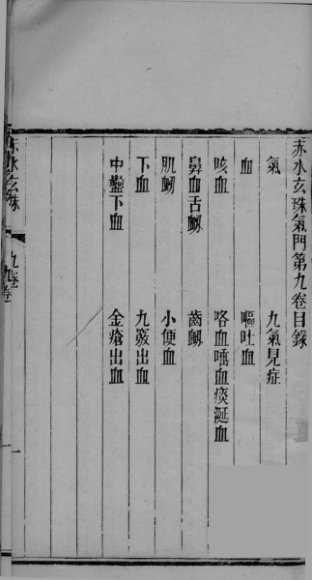 赤水玄珠氣門第九卷目錄
氣 九氣見症
血 嘔吐血
咳血 咯血唾血痰涎血
鼻血舌衂 齒衂
肌衂 小便血
下血 九竅出血
中蠱下血 金瘡出血
赤水玄珠 九卷 一